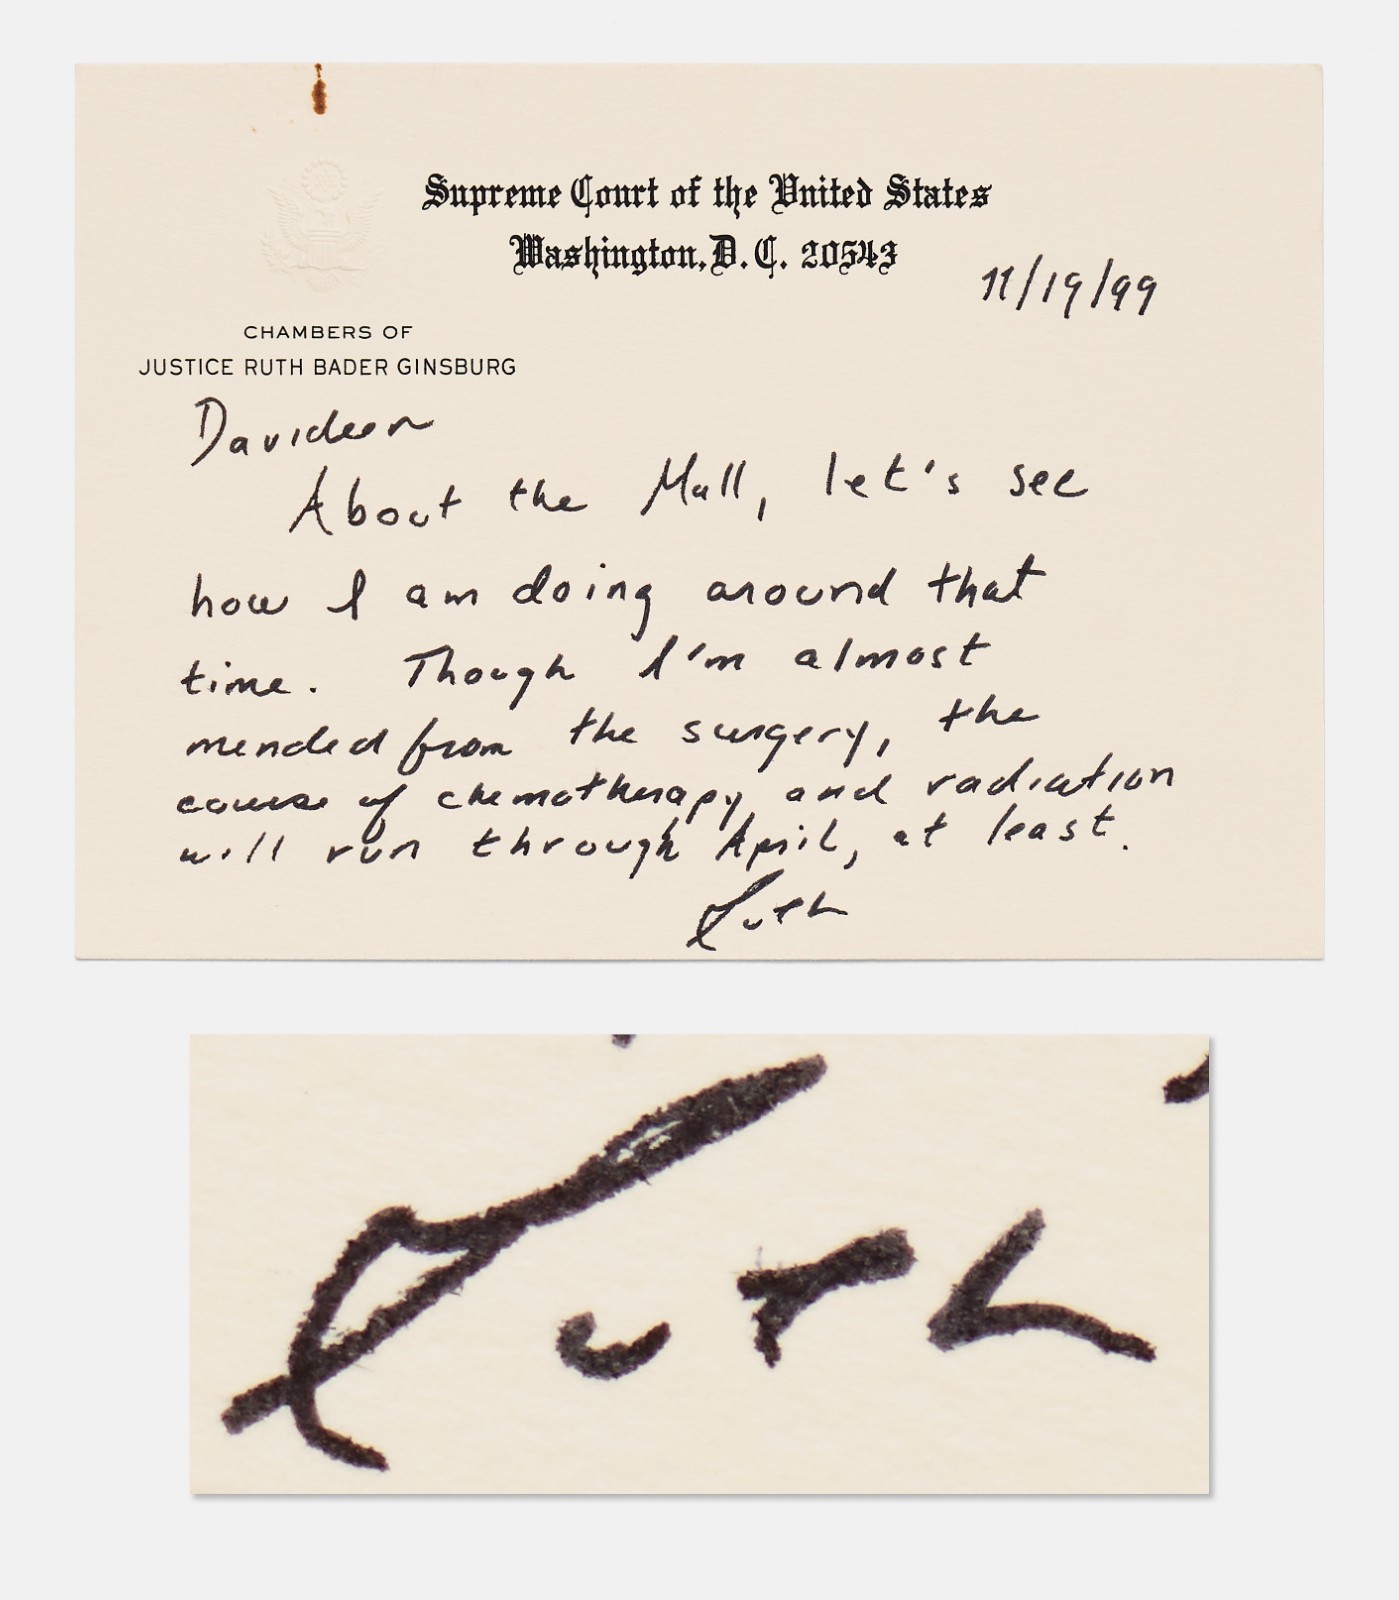 Supreme Court of the United States
Washington, D. C. 20543
11/19/99
CHAMBERS OF
JUSTICE RUTH BADER GINSBURG
Davideen
About the Mall, let's see
how I am doing around that
time. Though I'm almost
mended from the surgery, the
course of chemotherapy and radiation
will run through April, at least.
Ruth
Ruth